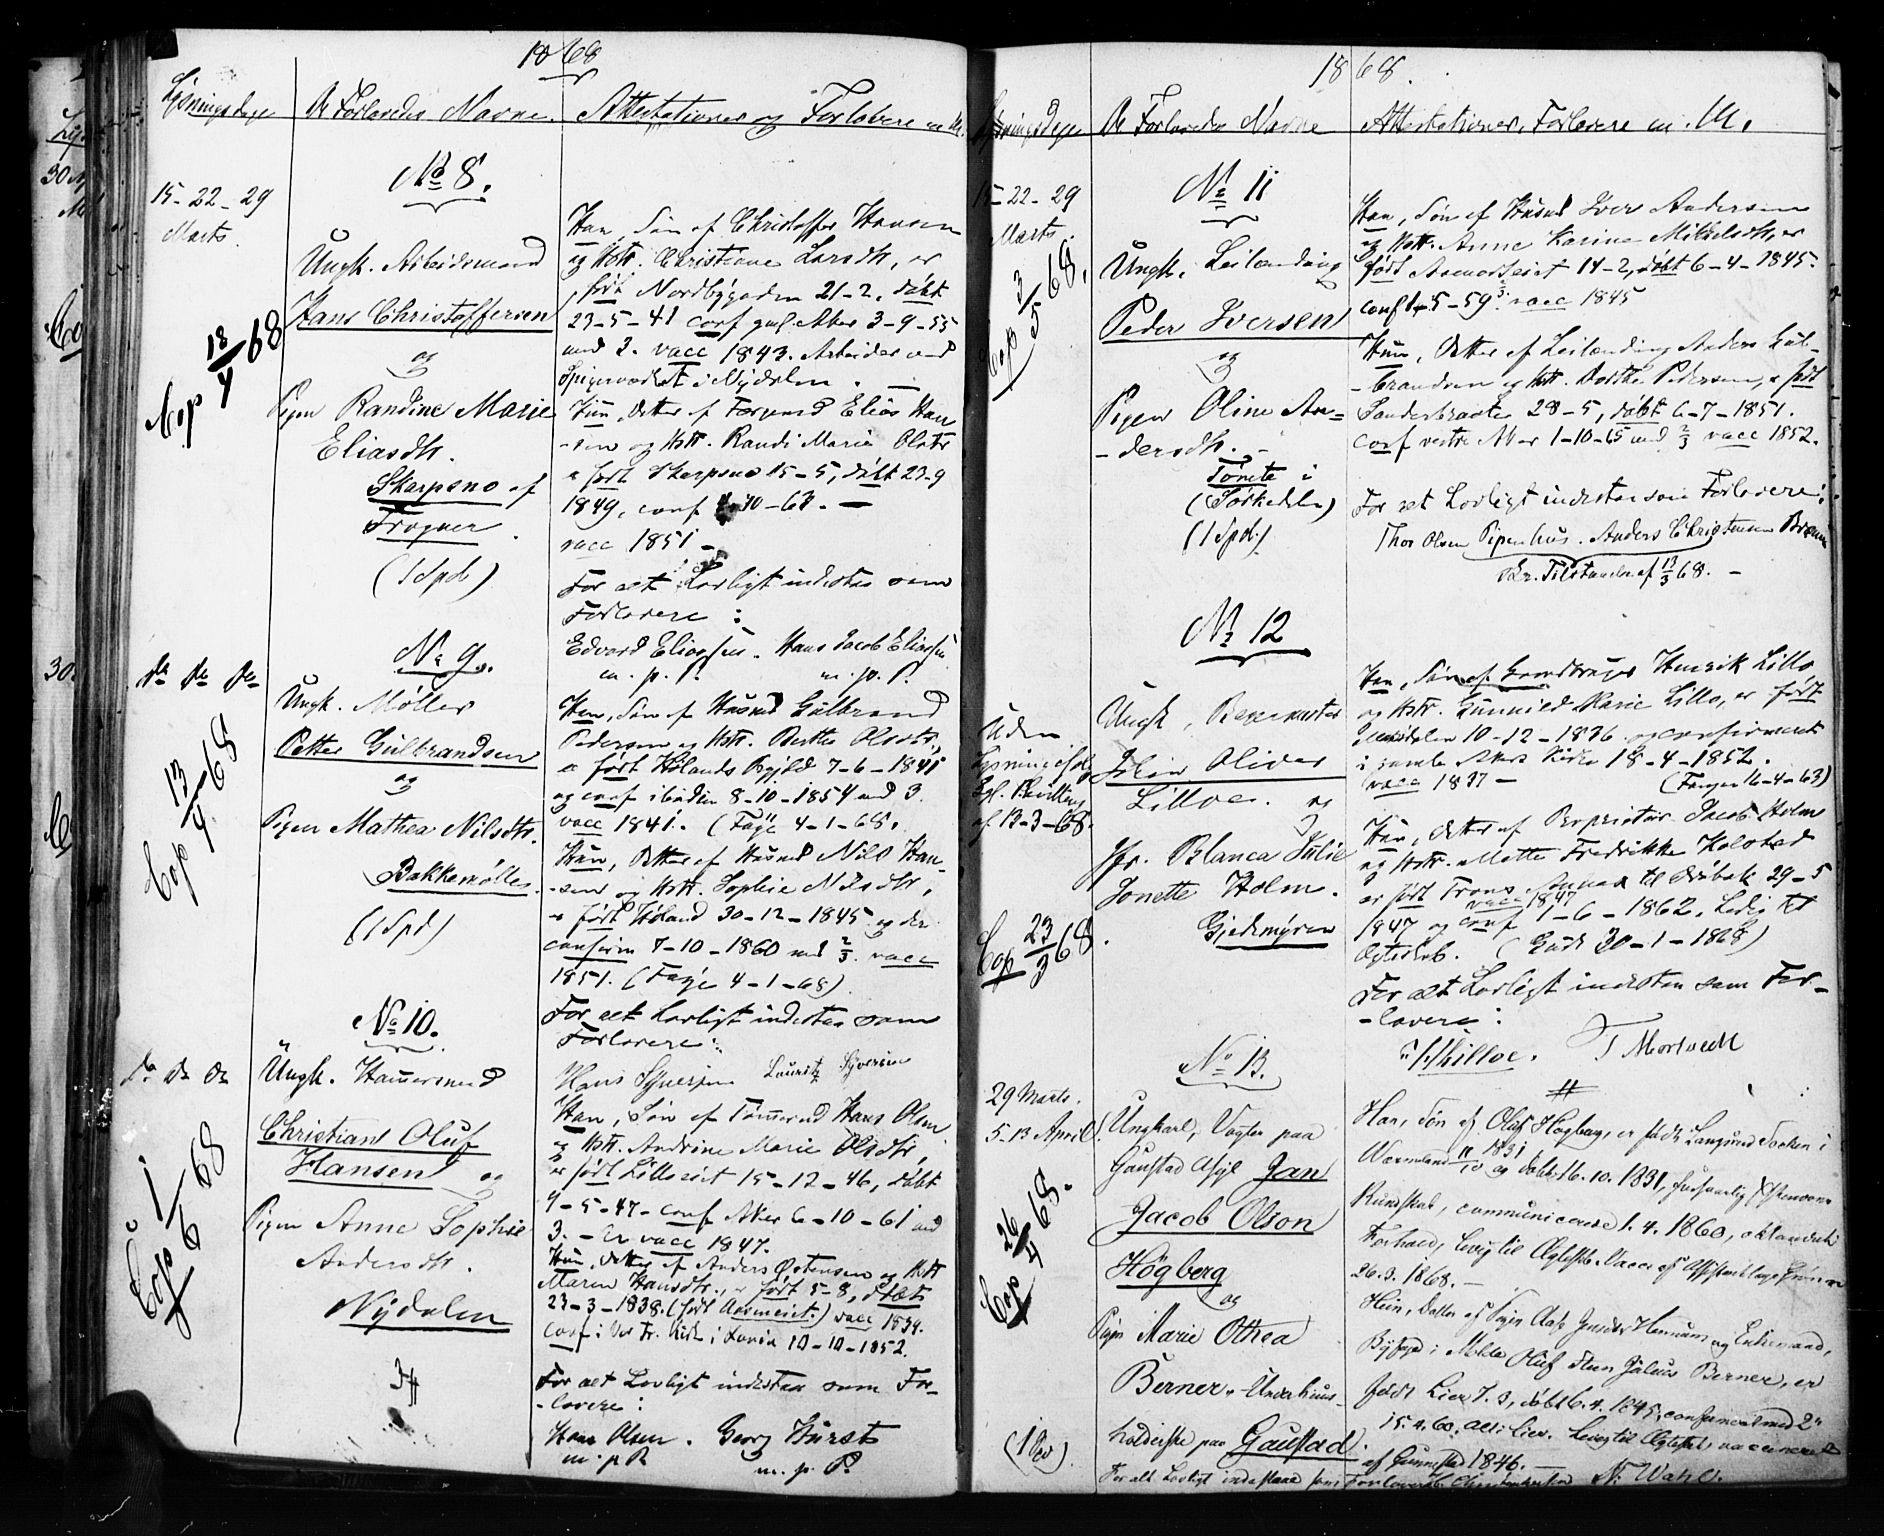 1868
Lysningsdage De Forlovedes Navne. Attestationer og Forlovere m. M.
No 8.
15-22-29
Marts.
Ungk. Arbeidsmand
Hans Christoffersen
og
Pigen Randine Marie
Eliasdtr.
Skarpsno af
Frogner.
(1 Spd)
Cop 18/4 68
Han, Søn af Christoffer Hansen
og Hstr. Christiane Larsdtr, er
født Nordbygaden 21-2, døbt
23-5-41 conf gml. Aker 3-9-55
med 3. vacc 1843. Arbeider ved
Spigerværket i Nydalen.
Hun, Datter af Elias Han-
-sen og Hstr. Randi Marie Olsdtr
er født Skarpsno 15-5, døbt 23-9
1849, conf 4-10-63. —
vacc 1851 —
For alt Lovligt indestaa som
Forlovere:
Edvard Eliassen. Hans Jacob Eliassen
m. p. P. m. p. P.
No 9.
do do do
Ungk. Møller
Petter Gulbrandsen
og
Pigen Mathea Nilsdtr.
Bakkemøllen.
(1 Spd)
Cop 13/4 68
Han, Søn af Husmd Gulbrand
Pedersen og Hstr. Berthe Olsdtr,
er født Hølands Prgjld 7-6-1841
og conf ibidem 8-10-1854 med 3.
vacc 1841. (Faye 4-1-68.
Hun, Datter af Husmd Nils Han-
-sen og Hstr. Sophie Nilsdtr,
er født Høland 30-12-1845 og der
confirm 7-10-1860 med 2/3. vacc
1851. (Faye 4-1-68)
For alt Lovligt indestaa som
Forlovere:
Hans Syversen Lauritz Syversen
No 10.
do do do
Ungk. Hammersmed
Christian Oluf
Hansen og
Pigen Anne Sophie
Andersdtr.
Nydalen
Cop 1/6 68
Han, Søn af Tømmermd Hans Olsen
og Hstr. Andrine Marie Olsdtr,
er født Lilloseiet 15-12-46, døbt
9-5-47- conf Aker 6-10-61 med
3. - Er vacc 1847.
Hun, Datter af Anders Østensen og Hstr
Maren Hansdtr., er født 5-8, døbt
23-3-1838. vacc 1839.
conf i Vor Fr. Kirke i 10-10-1852.
For alt Lovligt indestaa som For-
-lovere:
Hans Olsen. Georg Hurst
m. p. P. m. p. P.
1868.
Lysningsdage De Forlovedes Navne Attestationer, Forlovere m. M.
No 11
15-22-29
Marts.
Ungk. Leilænding
Peder Iversen
og
Pigen Oline An=
-dersdtr. -
Tømte i
(Sørkedalen)
(1 Spd.)
Cop 3/5 68.
Han, Søn af Husmd Iver Andersen
og Hstr. Anne Karine Mikkelsdtr, er
født 14-2, døbt 6-4-1845.
conf -5-59 vacc 1845
Hun, Datter af Leilænding Anders Gul-
-brandsen og Hstr. Dorthe Pedersen, er født
28-5, døbt 6-7-1851.
conf vestre Aker 1-10-65 med 2/3 vacc 1852.
For alt Lovligt indestaa som Forlovere:
Thor Olsen Pipenhus. Anders Christensen
Tilstaaelse af 13/3 68. -
No 12
Uden
Lysning
af 13-3-68.
Ungk,
Johan Oliver
Lilloe. og
Jfr. Blanca Julie
Jonette Holm.
Gjedemyren
Cop 23/3 68
Han, Søn af Gaardbruger Henrik Lillo
og Hstr. Gunnild Marie Lillo, er født
10-12-1836 og confirmeret
i gamle Akers Kirke 18-4-1852.
vacc 1837 -
Hun, Datter af Proprietær Jacob Holm
og Hstr. Mette Fredrikke Kolstad
er født til Drøbak 29-5
1847 og vacc 1847 conf 1-6-1862. Ledig til
Ægteskab. (30-1-1868)
For alt Lovligt indestaa som For-
-lovere:
Lilloe. T Mortvedt
No 13.
29 Marts.
5-13 April.
Ungkarl, Vogter paa
Gaustad Asyl Jan
Jacob Olson
Högberg
og
Pigen Marie Othea
Berner. - Underhuus-
holderske paa Gaustad.
(1 Spd).
Cop 26/4 68.
Han, Søn af Olof Högberg, er født Sochen i
Wermland 11/10 1831 og døbt 16.10.1831,
Kundskab, communicerede 1.4.1860,
Forhold, ledig til Ægteskab. Vacc. af
26.3.1868. -
Hun, Datter af Pigen og Enkemand,
Byfoged i Molde Oluf Sten Julius Berner, er
født Lier 7.3, døbt 6.4.1845, confirmeret med 2
15.4.60, Lier. Ledig til Ægteskab, vaccineret
af Gunnestad 1846. -
For alt Lovligt indestaae som Forlovere N. Wahl.
30